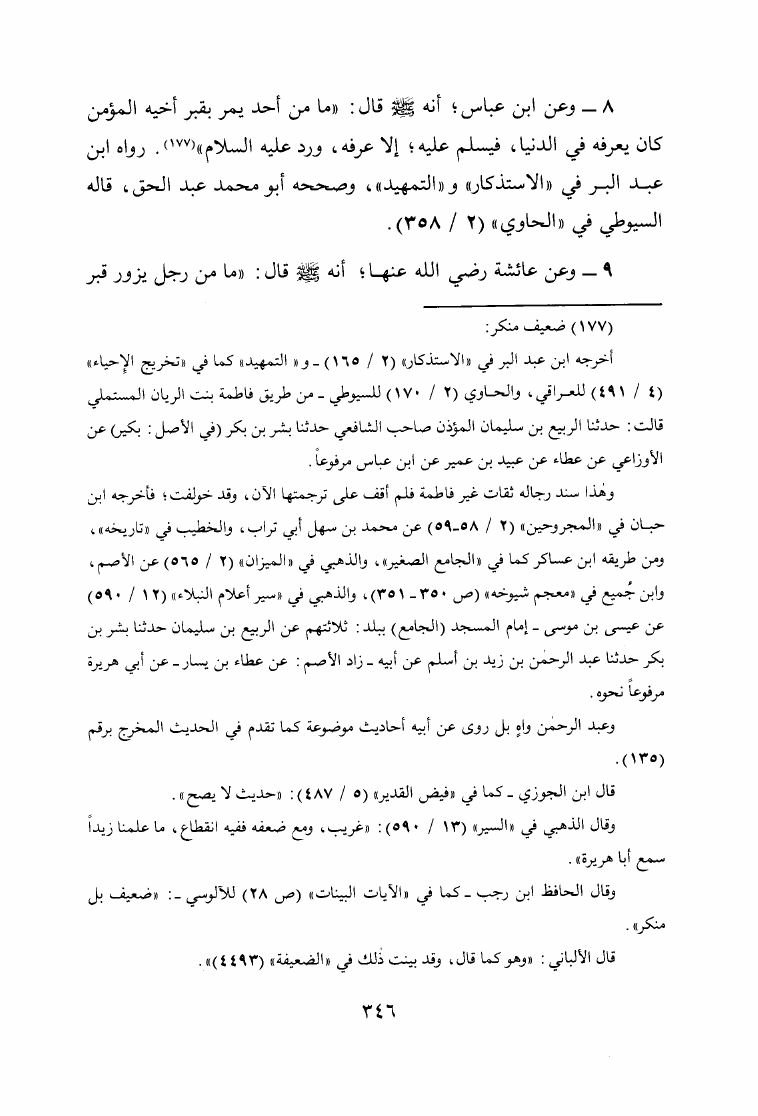 ٨ ــ وعن ابن عباس؛ أنه ﷺ قال: «ما من أحد يمر بقبر أخيه المؤمن
كان يعرفه في الدنيا، فيسلم عليه؛ إلا عرفه، ورد عليه السلام»(١٧٧). رواه ابن
عبد البر في «الاستذكار» و«التمهيد»، وصححه أبو محمد عبد الحق، قاله
السيوطي في «الحاوي» (٢ / ٣٥٨).
٩ ــ وعن عائشة رضي الله عنها؛ أنه ﷺ قال: «ما من رجل يزور قبر
(١٧٧) ضعيف منكر:
أخرجه ابن عبد البر في «الاستذكار» (٢ / ١٦٥) ـ و« التمهيد» كما في «تخريج الإحياء»
(٤ / ٤٩١) للعراقي، والحاوي (٢ / ١٧٠) للسيوطي ـ من طريق فاطمة بنت الريان المستملي
قالت: حدثنا الربيع بن سليمان المؤذن صاحب الشافعي حدثنا بشر بن بكر (في الأصل: بكير) عن
الأوزاعي عن عطاء عن عبيد بن عمير عن ابن عباس مرفوعاً.
وهٰذا سند رجاله ثقات غير فاطمة فلم أقف على ترجمتها الآن، وقد خولفت؛ فأخرجه ابن
حبان في «المجروحين» (٢ / ٥٨ـ٥٩) عن محمد بن سهل أبي تراب، والخطيب في «تاريخه»،
ومن طريقه ابن عساكر كما في «الجامع الصغير»، والذهبي في «الميزان» (٢ / ٥٦٥) عن الأصم،
وابن جُميع في «معجم شيوخه» (ص ٣٥٠ ـ ٣٥١)، والذهبي في «سير أعلام النبلاء» (١٢ / ٥٩٠)
عن عيسى بن موسى ـ إمام المسجد (الجامع) ببلد: ثلاثتهم عن الربيع بن سليمان حدثنا بشر بن
بكر حدثنا عبد الرحمٰن بن زيد بن أسلم عن أبيه ـ زاد الأصم: عن عطاء بن يسار ـ عن أبي هريرة
مرفوعاً نحوه.
وعبد الرحمٰن واهٍ بل روى عن أبيه أحاديث موضوعة كما تقدم في الحديث المخرج برقم
(١٣٥).
قال ابن الجوزي ـ كما في «فيض القدير» (٥ / ٤٨٧): «حديث لا يصح».
وقال الذهبي في «السير» (١٣ / ٥٩٠): «غريب، ومع ضعفه ففيه انقطاع، ما علمنا زيداً
سمع أبا هريرة».
وقال الحافظ ابن رجب ـ كما في «الآيات البينات» (ص ٢٨) للآلوسي ـ: «ضعيف بل
منكر».
قال الألباني: «وهو كما قال، وقد بينت ذٰلك في «الضعيفة» (٤٤٩٣)».
٣٤٦